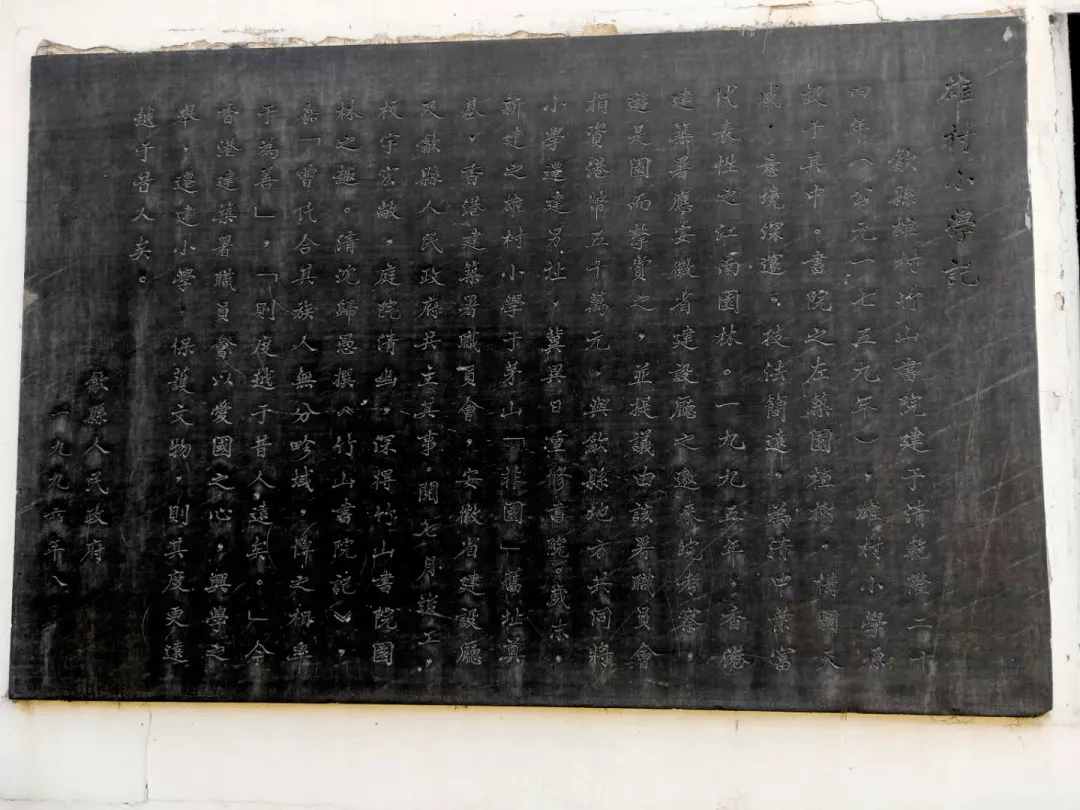 雄村小學記
歙縣雄村竹山書院建于清乾隆二十
四年（公元一七五九年），雄村小學原
設于其中。書院之左築園植樹，構圖入
意境深邃，技法簡進，為清中葉富
代表性之江南園林。一九九五年，香港
建築署應安徽省建設廳之邀來皖考察，
遊是園而擊賞之，並提議由該署職員會
捐資港幣五十萬元，與歙縣地方共同將
小學遷建另址，冀異日重修書院。
新建之雄村小學于茅山「非園」舊址奠
基，香港建築署職員會，安徽省建設廳
及歙縣人民政府共主其事。閱七月竣工，
校宇宏敞，庭院清幽，深得竹山書院園
林之趣。清沈歸愚撰《竹山書院記》，
「曹氏合其族人無分畛域，俾之相率
于為善」，「則度越于昔人遠矣。」今
香港建築署職員會以愛國之心，興學之
舉，遷建小學，保護文物，則其度更遠
越于昔人矣。
歙縣人民政府
一九九六年八